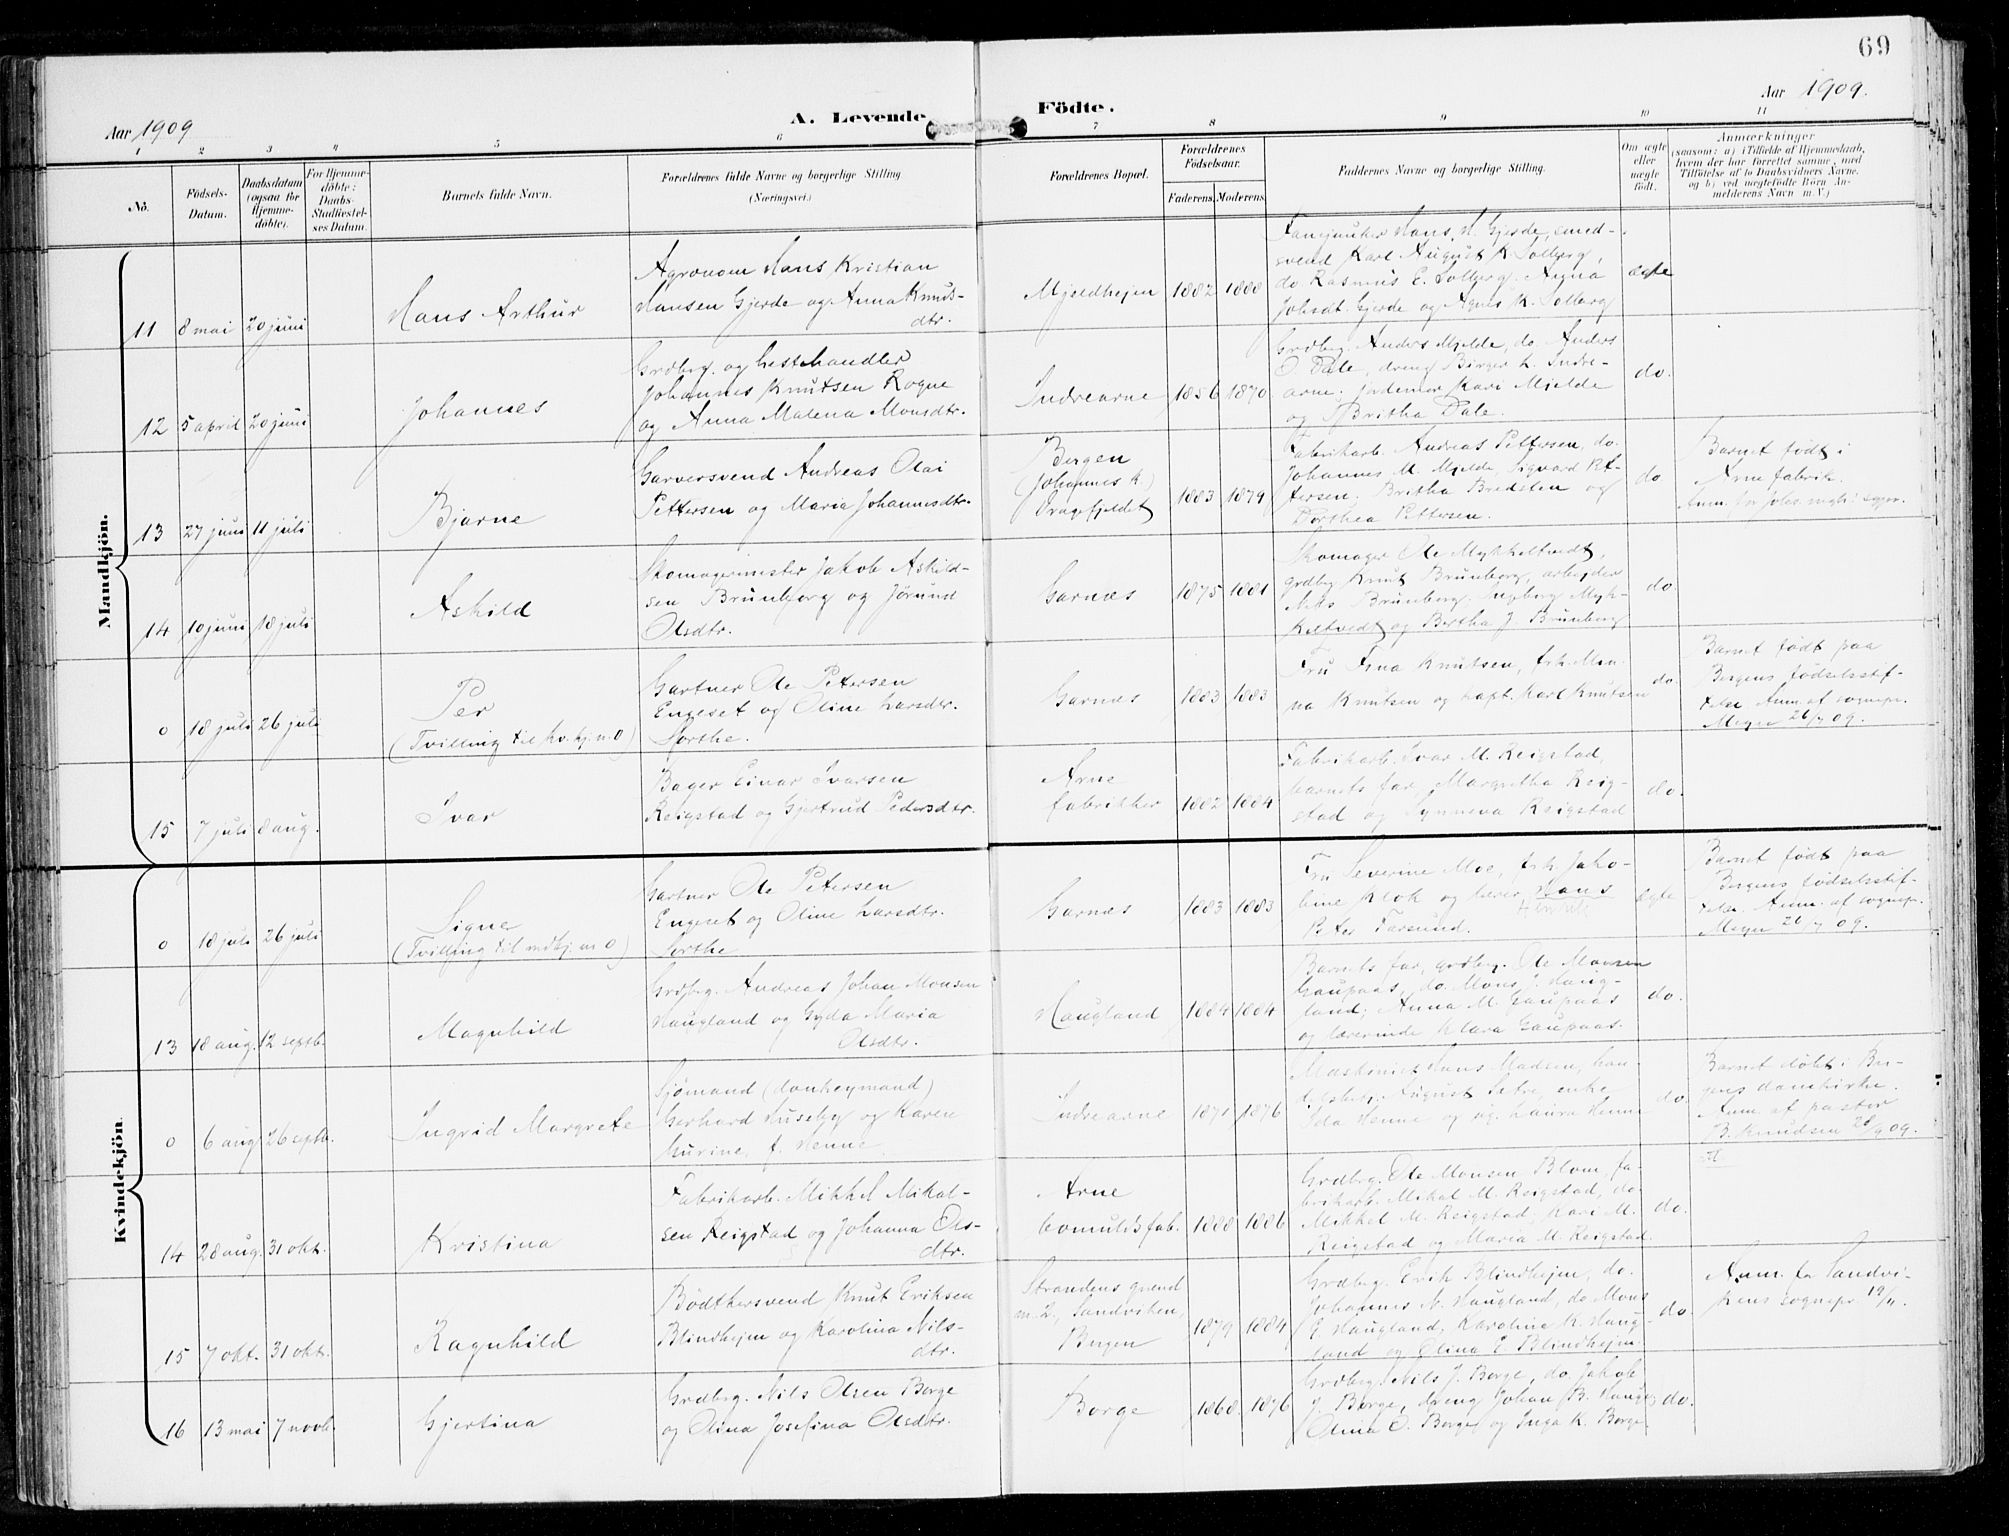 69
Aar 1909
A. Levende
Födte.
Aar 1909.
1 2 3 4 5 6 7 8 9 10 11
No.
Födsels-
Datum.
Daabsdatum
(ogsaa for
Hjemme-
döbte).
For Hjemme-
döbte:
Daabs-
Stadfæstel-
ses Datum.
Barnets fulde Navn.
Forældrenes fulde Navne og borgerlige Stilling
(Næringsvei.)
Forældrenes Bopæl.
Forældrenes
Födselsaar.
Faderens. Moderens.
Faddernes Navne og borgerlige Stilling.
Om ægte
eller
uægte
födt.
Anmærkninger
(saasom: a) i Tilfælde af Hjemmedaab,
hvem der har forrettet samme, med
Tilföielse af to Daabsvidners Navne.
og b) ved uægtefödte Börn An-
melderens Navn m. V.)
Mandkjön.
11 8 mai 20 juni
Hans Arthur
Agronom Hans Kristian
Hansen Gjerde og Anna Knuds-
dtr.
Mjeldhejen 1882 1888
Hans H. Gjerde, smed-
svend Karl August K. Solberg,
do Rasmus E. Solberg. Agna
Johsdt. Gjerde og Agnes K. Solberg
ægte
12 5 april 20 juni
Johannes
Grdbrg. og hestehandler
Johannes Knutsen Rogne
og Anna Malena Monsdtr.
Indrearne 1856 1870
Grdbrg. Anders Mjelde, do. Anders
O. Dale, dreng Birger L. Indre-
arne. Jordemor Kari Mjelde
og Britha Dale.
do.
13 27 juni 11 juli
Bjarne
Garversvend Andreas Olai
Pettersen og Maria Johannesdtr.
Bergen
(Johannes k.)
Dragefjeldet
1883 1879
Fabrikarb. Andreas Pettersen, do.
Johannes M. Mjelde, Sigvard Pet-
tersen. Britha Bredsten og
Dorthea Pettersen.
do
Barnet født i
Arne fabrik.
14 10 juni 18 juli
Askild
Skomagermester Jakob Askild-
sen Brunborg og Jørund
Olsdtr.
Garnæs 1875 1881
Skomager Ole Mykkeltvedt,
grdbrg. Knut Brunborg, arbejder
Nils Brunborg. Ingeborg Myk-
keltvedt og Bertha J. Brunborg
do.
0 18 juli 26 juli
Per
(Tvilling til kv.kj. n. 0)
Gartner Ole Petersen
Engeset og Oline Larsdtr.
Sorthe.
Garnæs 1883 1883
Fru Fina Knutsen, frk. Min-
na Knutsen og kapt. Karl Knutsen
do.
Barnet født paa
Bergens fødselsstif-
telse. Anm. af sognepr.
Meyer 26/7 09.
15 7 juli 8 aug.
Ivar
Bager Einar Ivarsen
Reigstad og Gjertrud Pedersdtr.
Arne
fabrikker
1882 1884
Fabrikarb. Ivar M. Reigstad,
barnets far, Margretha Reig-
stad og Synneva Reigstad
do.
Kvindekjön.
0 18 juli 26 juli
Signe
(Tvilling til mdkj. n. 0)
Gartner Ole Petersen
Engeset og Oline Larsdtr.
Sorthe
Garnæs 1883 1883
Fru Severine Moe, frk. Jako-
bine Klok og herr Hans
Peter Farsund.
ægte
Barnet født paa
Bergens fødselsstif-
telse. Anm. af sognepr.
Meyer 26/7 09.
13 18 aug. 12 septb.
Magnhild
Grdbrg. Andreas Johan Monsen
Haugland og Gyda Maria
Olsdtr.
Haugland 1884 1884
Barnets far, grdbrg. Ole Monsen
Gaupaas, do. Mons J. Haug-
land; Anna M. Gaupaas
og lærerinde Klara Gaupaas.
do.
0 6 aug 26 septb.
Ingrid Margrete
Sjømand (donkeymand)
Gerhard Huseby og Karen
Gurine, f. Henne
Indrearne 1871 1876
Maskinist Hans Madsen, han-
delsbest. August Sætre, enke
Ida Henne og ug. Laura Henne
do.
Barnet døbt i Ber-
gens domkirke.
Anm. af pastor
B. Knudsen 26/9 09.
14 28 aug. 31 okt.
Kristina
Fabrikarb. Mikkel Mikal-
sen Reigstad og Johanna Ols-
dtr.
Arne
bomuldsfab.
1888 1886
Grdbrg. Ole Monsen Blom, fa-
brikarb. Mikal M. Reigstad, do
Mikkel M. Reigstad, Kari M.
Reigstad og Maria M. Reigstad.
do.
15 7 okt. 31 okt.
Ragnhild
Bødkersvend Knut Eriksen
Blindhejm og Karolina Nils-
dtr.
Strandens grend
n. 2, Sandviken,
Bergen
1879 1884
Grdbrg. Erik Blindhejm, do.
Johannes N. Haugland, do Mons
E. Haugland, Karoline K. Haug-
land og Olina E. Blindhejm.
do.
Anm. for Sandvi-
kens sognepr.
16 13 mai 7 novb.
Gjertina
Grdbrg. Nils Olsen Borge
og Olina Josefina Olsdtr.
Borge 1868 1876
Grdbrg. Nils J. Borge, do. Jakob
J. Borge, dreng Johan B. Hauge,
Olina O. Borge og Inga K. Borge.
do.